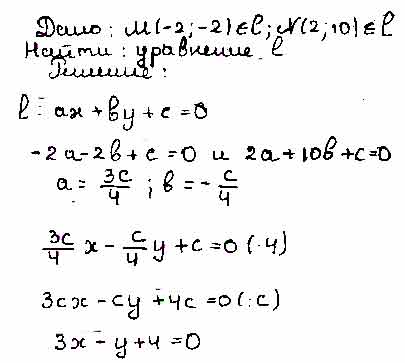 Дано: M(-2;-2)∈l; N(2;10)∈l
Найти: уравнение l
Решение:
l: ax+by+c=0
-2a-2b+c=0 и 2a+10b+c=0
a=3c/4; b=-c/4
3c/4 x - c/4 y + c=0 (·4)
3cx-cy+4c=0 (:c)
3x-y+4=0